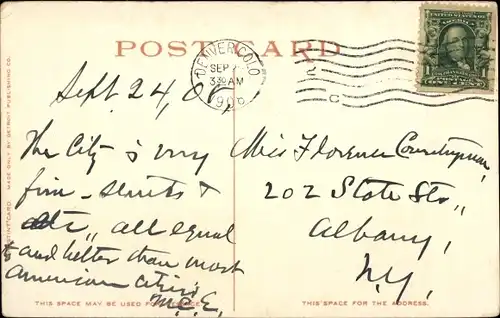 POST CARD
DENVER, COLO.
SEP 2
3 30 AM
1906
Sept 24, 06
The City is very
fine – streets &
etc,, all equal
to and better than most
American cities
M.C.E.
Miss Florence Countryman,
202 State St,,
Albany,
N.Y.
THIS SPACE MAY BE USED FOR
THIS SPACE FOR THE ADDRESS.
MADE ONLY BY DETROIT PUBLISHING CO.